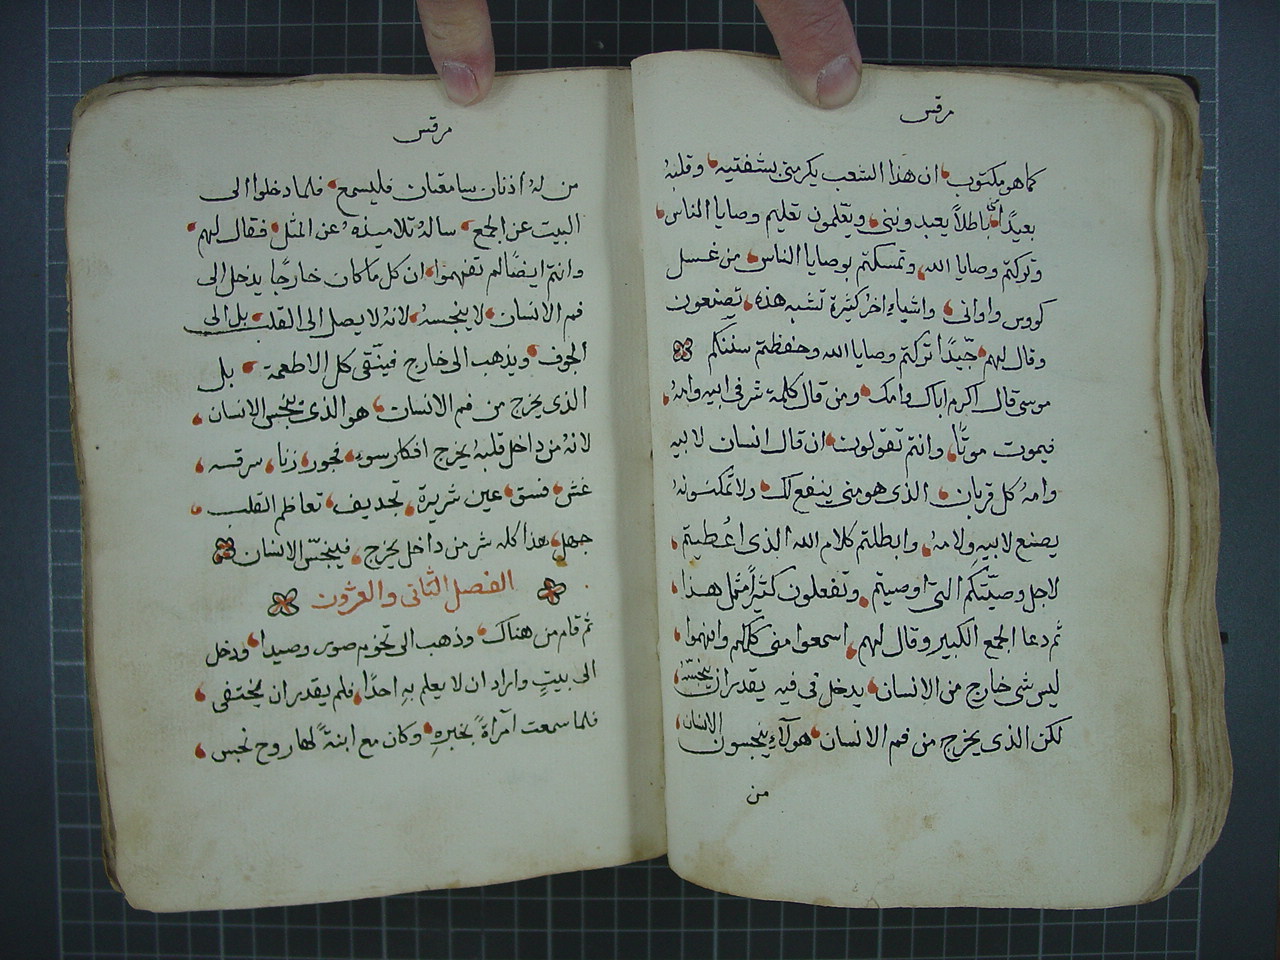 مرقس
كما هو مكتوب ان هذا الشعب يكرمني بشفتيه وقلبه
بعيدًا باطلاً يعبدونني ويعلمون تعليم وصايا الناس
وتركتم وصايا الله وتمسكتم بوصايا الناس من غسل
كووس واواني واشياء اخر كثيرة تشبه هذه تصنعون
وقال لهم جيدًا تركتم وصايا الله وحفظتم سننكم
موسى قال اكرم اباك وامك ومن قال كلمة شر في ابيه وامه
فيموت موتًا وانتم تقولون ان قال انسان لابيه
وامه كل قربان الذي هو مني ينفعك ولا تمكنونه
يصنع لابيه ولامه وابطلتم كلام الله الذي اعطيتم
لاجل وصيتكم التي اوصيتم وتفعلون كثيرًا مثل هذا
ثم دعا الجمع الكبير وقال لهم اسمعوا مني كلكم وافهموا
ليس شي خارج من الانسان يدخل في فيه يقدر ان ينجسه
لكن الذي يخرج من فم الانسان هولآء ينجسون الانسان
من
مرقس
من له اذنان سامعتان فليسمع فلما دخلوا الى
البيت عن الجمع ساله تلاميذه عن المثل فقال لهم
وانتم ايضًا لم تفهموا ان كل ما كان خارجًا يدخل الى
فم الانسان لا ينجسه لانه لا يصل الى القلب بل الى
الجوف ويذهب الى خارج فينقي كل الاطعمة بل
الذي يخرج من فم الانسان هو الذي ينجس الانسان
لانه من داخل قلبه يخرج افكار سوء فجور زنا سرقه
غش فسق عين شريرة تجديف تعاظم القلب
جهل هذا كله شر من داخل يخرج فينجس الانسان
الفصل الثاني والعشرون
ثم قام من هناك وذهب الى تخوم صور وصيدا ودخل
الى بيتٍ واراد ان لا يعلم به احدًا فلم يقدر ان يختفي
فلما سمعت امراةً بخبره وكان مع ابنةً لها روح نجس